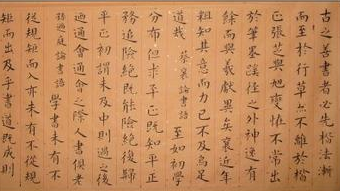 古之善書者必先楷法漸
而至於行草亦不離於楷
正張芝與旭變恠不常出
於筆墨蹊徑之外神逸有
餘而與羲獻異矣襄近年
粗知其意而力已不及烏足
道哉 蔡襄論書語 至如初學
分布但求平正既知平正
務追險絕既能險絕復歸
平正初謂未及中則過之後
通會通會之際人書俱老
過庭論書語 學書未有不
從規矩而入亦未有不從規
矩而出及乎書道既成則